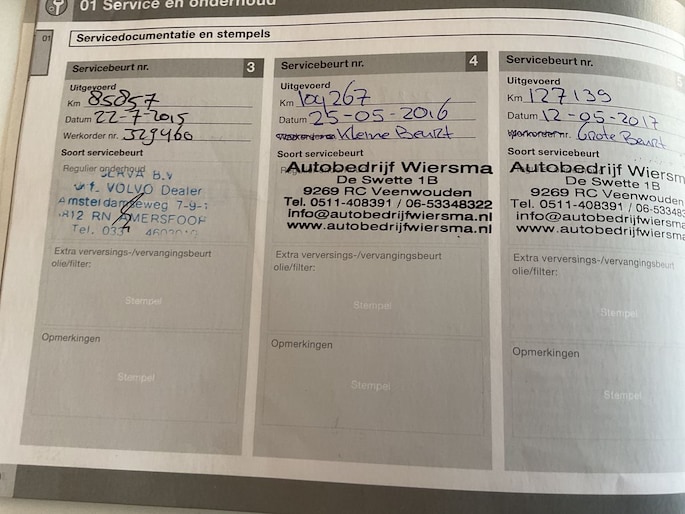 01 Service en onderhoud
01
Servicedocumentatie en stempels
Servicebeurt nr. 3
Uitgevoerd
Km 85857
Datum 22-7-2015
Werkorder nr. 329460
Soort servicebeurt
Regulier onderhoud
SERVA B.V
VOLVO Dealer
Amsterdamseweg 7-9-
812 RN AMERSFOOR
Tel. 033
Extra verversings-/vervangingsbeurt
olie/filter:
Stempel
Opmerkingen
Stempel
Servicebeurt nr. 4
Uitgevoerd
Km 104267
Datum 25-05-2016
Kleine Beurt
Soort servicebeurt
Autobedrijf Wiersma
De Swette 1B
9269 RC Veenwouden
Tel. 0511-408391 / 06-53348322
info@autobedrijfwiersma.nl
www.autobedrijfwiersma.nl
Extra verversings-/vervangingsbeurt
olie/filter:
Stempel
Opmerkingen
Stempel
Servicebeurt nr. 5
Uitgevoerd
Km 127139
Datum 12-05-2017
Werkorder nr. Grote Beurt
Soort servicebeurt
Autobedrijf Wiersma
De Swette 1B
9269 RC Veenwouden
Tel. 0511-408391 / 06-53348
info@autobedrijfwiersma
www.autobedrijfwiersma
Extra verversings-/vervangingsbeurt
olie/filter:
Stempel
Opmerkingen
Stempel